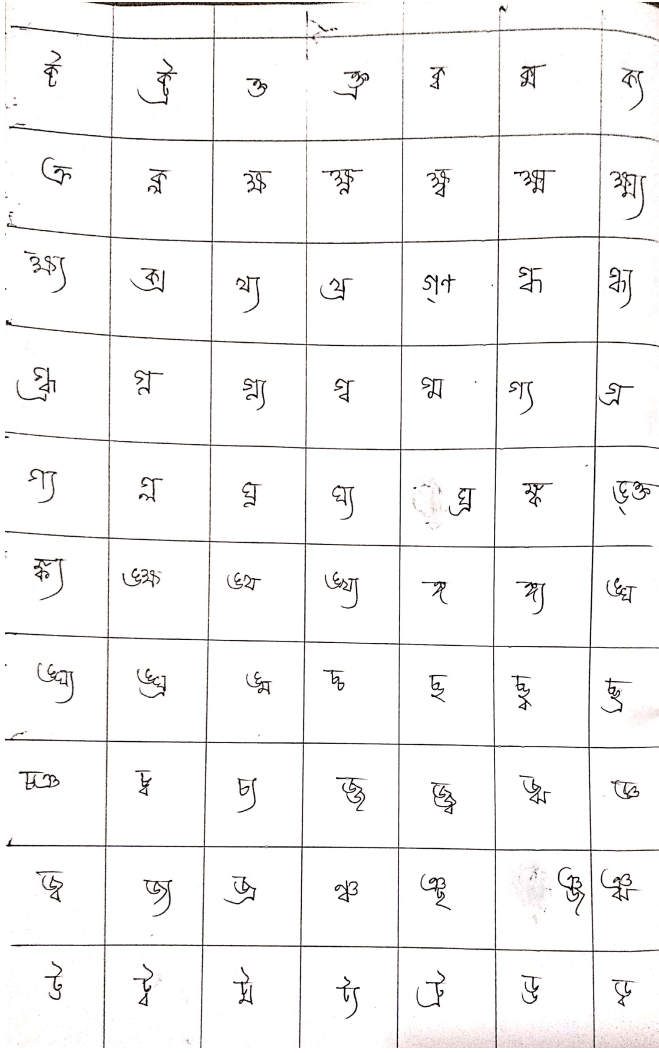 ক্ট ক্ট্র ক্ত ক্ত্র ক্ব ক্ম ক্য
ক্র ক্ল ক্ষ ক্ষ্ণ ক্ষ্ব ক্ষ্ম ক্ষ্ম্য
ক্ষ্য ক্স খ্য খ্র গ্ণ গ্ধ গ্ধ্য
গ্ধ্র গ্ন গ্ন্য গ্ব গ্ম গ্য গ্র
গ্য গ্ল ঘ্ন ঘ্য ঘ্র ঙ্ক ঙ্ক্ত
ঙ্ক্য ঙ্ক্ষ ঙ্খ ঙ্খ্য ঙ্গ ঙ্গ্য ঙ্ঘ
ঙ্ঘ্য ঙ্ঘ্র ঙ্ম চ্চ চ্ছ চ্ছ্ব চ্ছ্র
চ্ঞ চ্ব চ্য জ্জ জ্জ্ব জ্ঝ জ্ঞ
জ্ব জ্য জ্র ঞ্চ ঞ্ছ ঞ্জ ঞ্ঝ
ট্ট ট্ব ট্ম ট্য ট্র ড্ড ড্ব